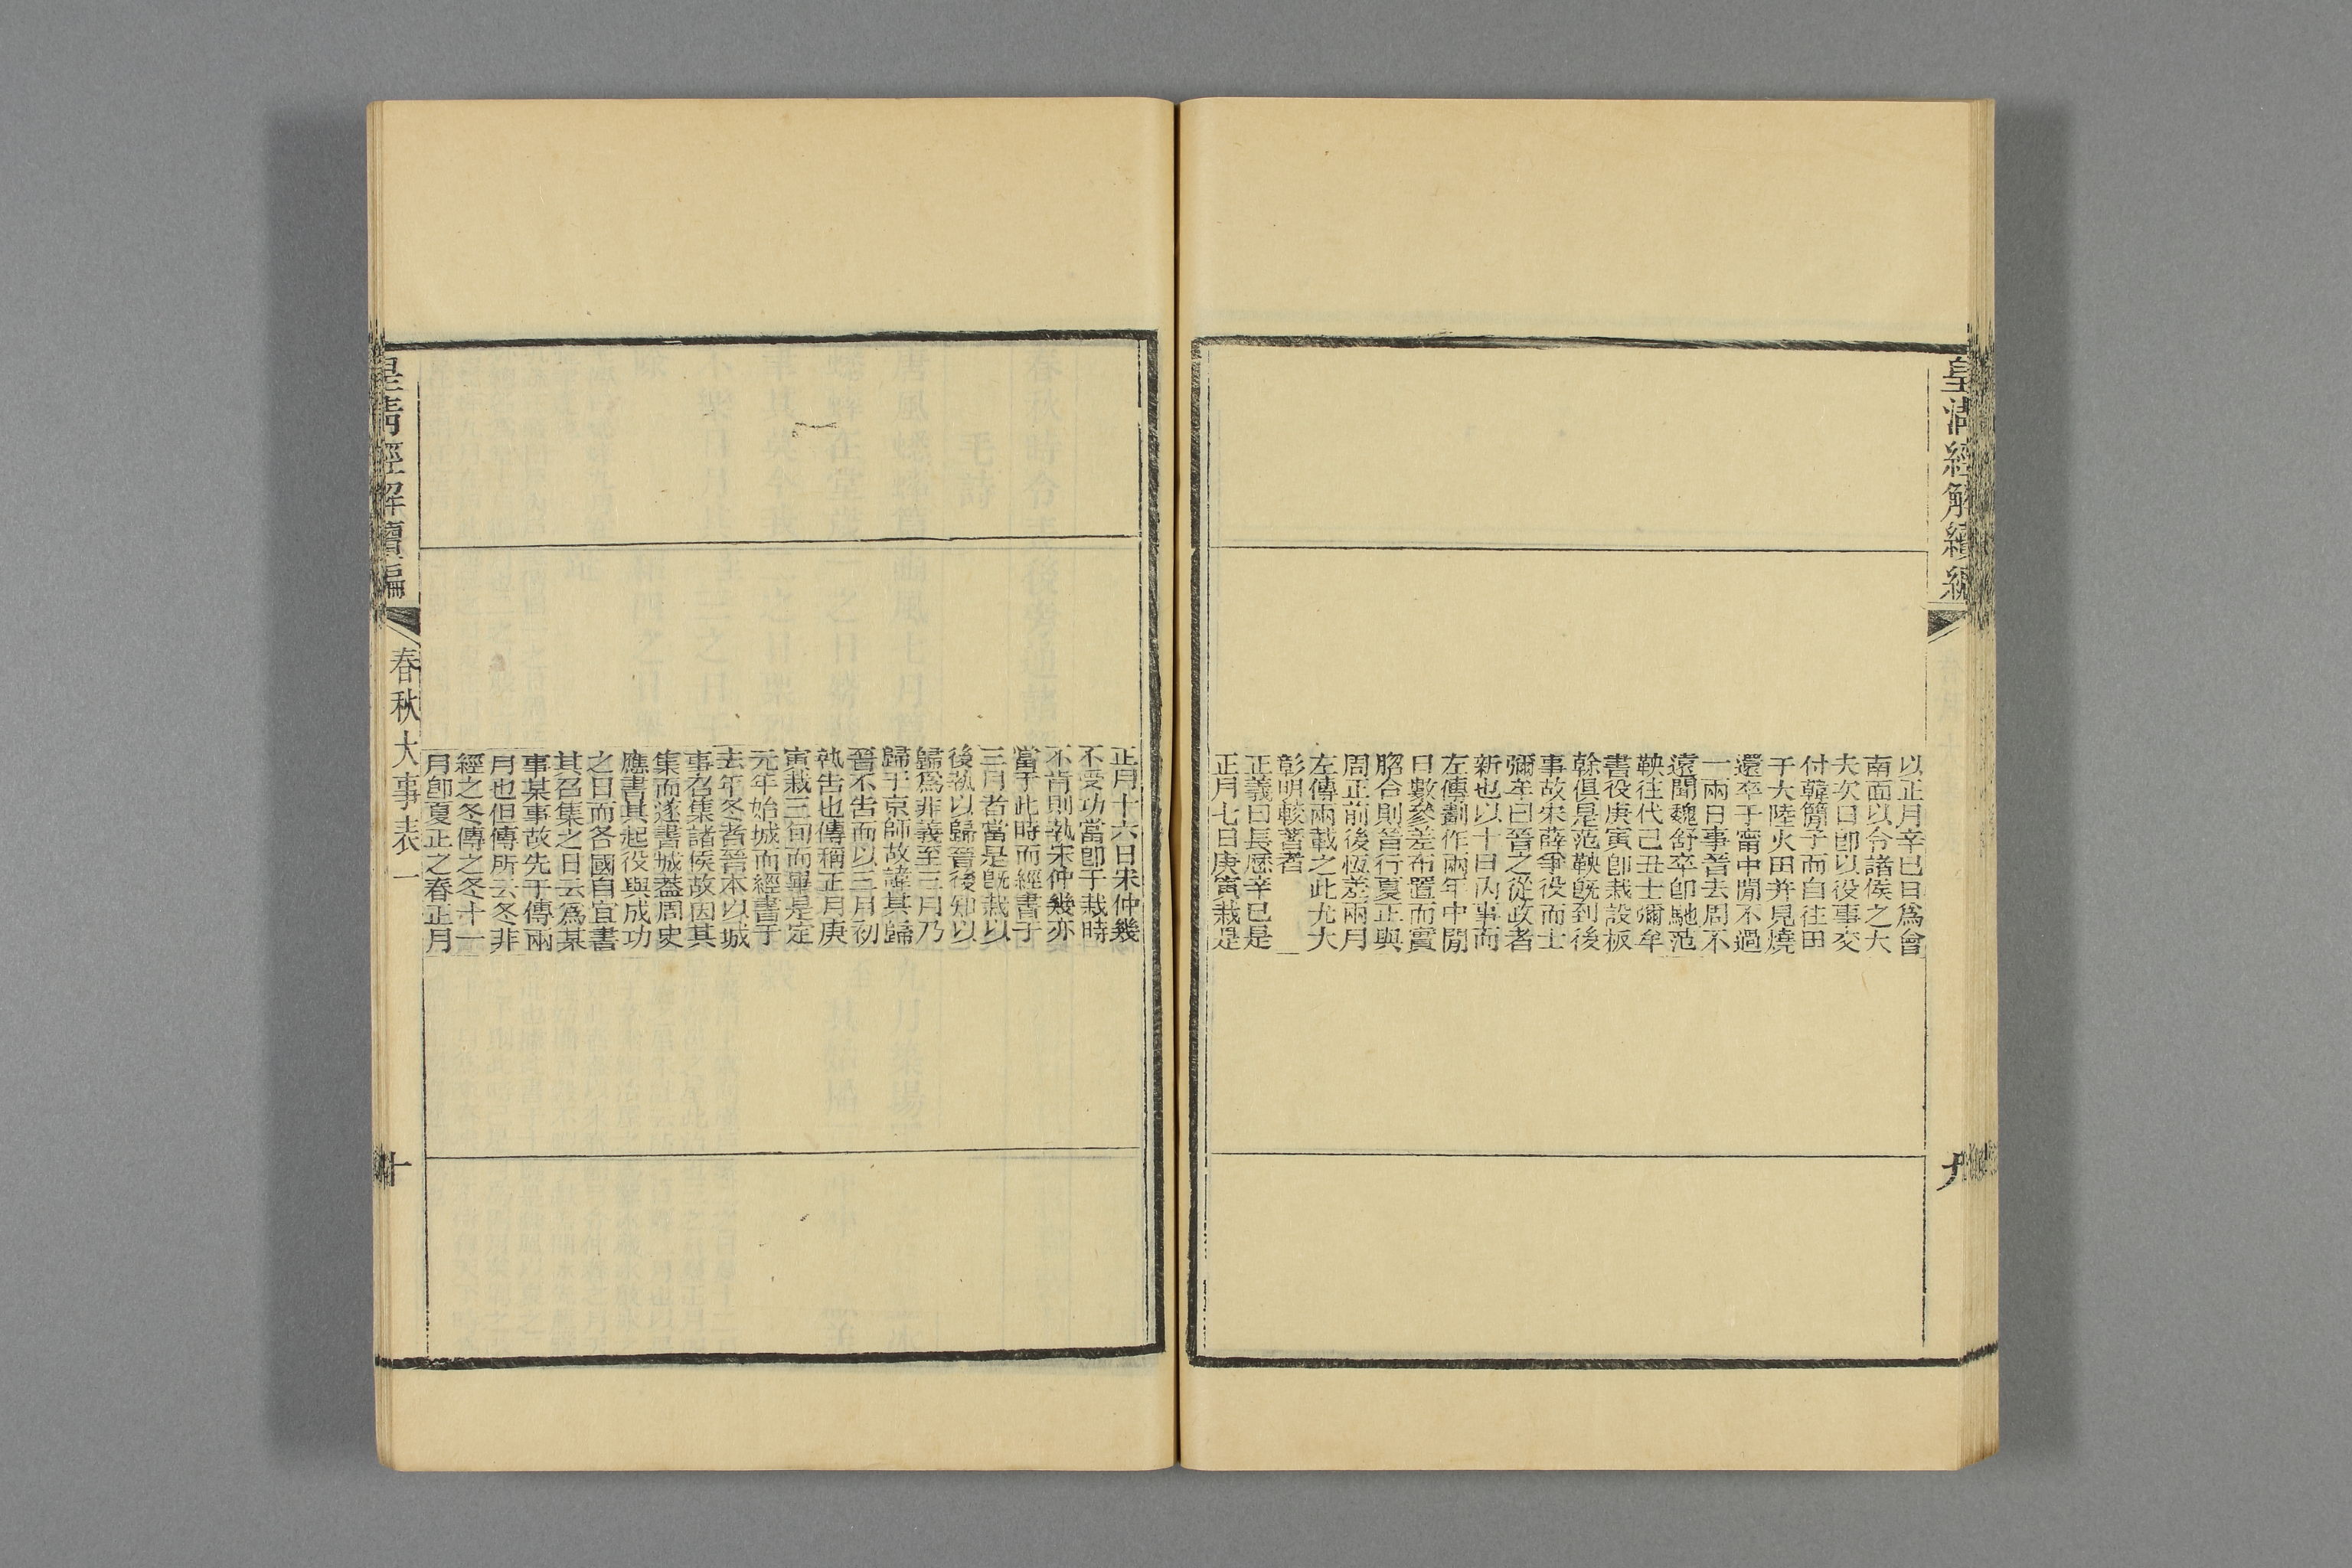 皇清經解續編
以正月辛巳日爲會
南面以令諸侯之大
夫次日卽以役事交
付韓簡子而自往田
于大陸火田并見燒
還卒于甯中閒不過
一兩日事晉去周不
遠聞魏舒卒卽馳范
鞅往代己丑士彌牟
書役庚寅卽栽設板
榦俱是范鞅旣到後
事故宋薛爭役而士
彌牟曰晉之從政者
新也以十日內事而
左傳劃作兩年中閒
日數參差布置而實
脗合則晉行夏正與
周正前後恆差兩月
左傳兩載之此尤大
彰明較著者
正義曰長厯辛巳是
正月七日庚寅栽是
九
正月十六日宋仲幾
不受功當卽于栽時
不肯則執宋仲幾亦
當于此時而經書于
三月者當是旣栽以
後執以歸晉後知以
歸爲非義至三月乃
歸于京師故諱其歸
晉不告而以三月初
執告也傳稱正月庚
寅栽三旬而畢是定
元年始城而經書于
去年冬者晉本以城
事召集諸侯故因其
集而遂書城葢周史
應書其起役與成功
之日而各國自宜書
其召集之日云爲某
事某事故先于傳兩
月也但傳所云冬非
經之冬傳之冬十一
月卽夏正之春正月
皇清經解續編
春秋大事表一
十